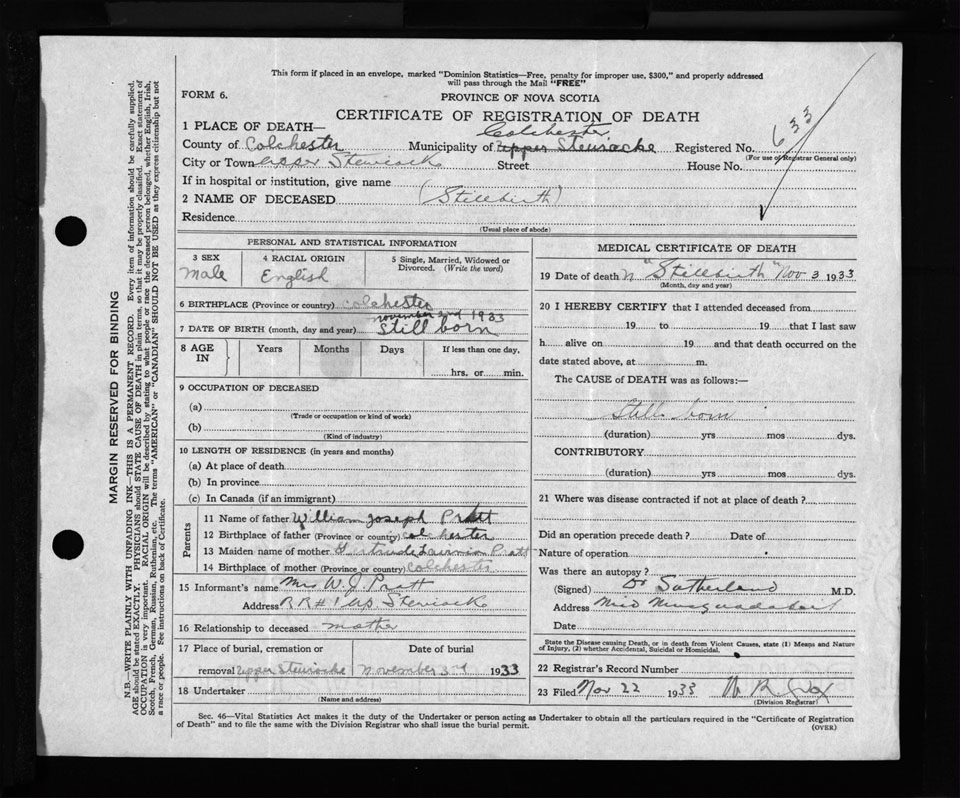 This form if placed in an envelope, marked "Dominion Statistics—Free, penalty for improper use, $300," and properly addressed
will pass through the Mail "FREE"
FORM 6.
PROVINCE OF NOVA SCOTIA
CERTIFICATE OF REGISTRATION OF DEATH
633
1 PLACE OF DEATH—
Colchester
County of Colchester Municipality of Upper Stewiacke Registered No.
(For use of Registrar General only)
City or Town Upper Stewiacke Street House No.
If in hospital or institution, give name
2 NAME OF DECEASED (Stillbirth)
Residence
(Usual place of abode)
PERSONAL AND STATISTICAL INFORMATION
3 SEX 4 RACIAL ORIGIN 5 Single, Married, Widowed or
Divorced. (Write the word)
Male English
6 BIRTHPLACE (Province or country) Colchester
November 2nd 1933
7 DATE OF BIRTH (month, day and year) Still born
8 AGE IN Years Months Days If less than one day,
hrs. or min.
9 OCCUPATION OF DECEASED
(a)
(Trade or occupation or kind of work)
(b)
(Kind of industry)
10 LENGTH OF RESIDENCE (in years and months)
(a) At place of death
(b) In province
(c) In Canada (if an immigrant)
Parents
11 Name of father William Joseph Pratt
12 Birthplace of father (Province or country) Colchester
13 Maiden name of mother Gertrude Pratt
14 Birthplace of mother (Province or country) Colchester
15 Informant's name Mrs W. J. Pratt
Address RR#1 Up Stewiacke
16 Relationship to deceased mother
17 Place of burial, cremation or Date of burial
removal Upper Stewiacke November 3rd 1933
18 Undertaker
(Name and address)
MEDICAL CERTIFICATE OF DEATH
19 Date of death "Stillbirth" Nov 3 1933
(Month, day and year)
20 I HEREBY CERTIFY that I attended deceased from
19 to 19 that I last saw
h alive on 19 and that death occurred on the
date stated above, at m.
The CAUSE OF DEATH was as follows:—
Still born
(duration) yrs mos dys.
CONTRIBUTORY
(duration) yrs mos dys.
21 Where was disease contracted if not at place of death?
Did an operation precede death? Date of
Nature of operation
Was there an autopsy?
(Signed) Dr Sutherland M.D.
Address Musquodoboit
Date
State the Disease causing Death, or in death from Violent Causes, state (1) Means and Nature
of Injury, (2) whether Accidental, Suicidal or Homicidal.
22 Registrar's Record Number
23 Filed Nov 22 1933
(Division Registrar)
Sec. 46—Vital Statistics Act makes it the duty of the Undertaker or person acting as Undertaker to obtain all the particulars required in the "Certificate of Registration
of Death" and to file the same with the Division Registrar who shall issue the burial permit.
(OVER)
MARGIN RESERVED FOR BINDING
N.B.—WRITE PLAINLY WITH UNFADING INK—THIS IS A PERMANENT RECORD. Every item of information should be carefully supplied.
AGE should be stated EXACTLY. PHYSICIANS should STATE CAUSE OF DEATH in plain terms, so that it may be properly classified. Exact statement of
OCCUPATION is very important. RACIAL ORIGIN will be described by stating to what people or race the deceased person belonged, whether English, Irish,
Scotch, French, German, Russian, Ruthenian, etc. The terms "AMERICAN" or "CANADIAN" SHOULD NOT BE USED as they express citizenship but not
a race or people. See instructions on back of Certificate.